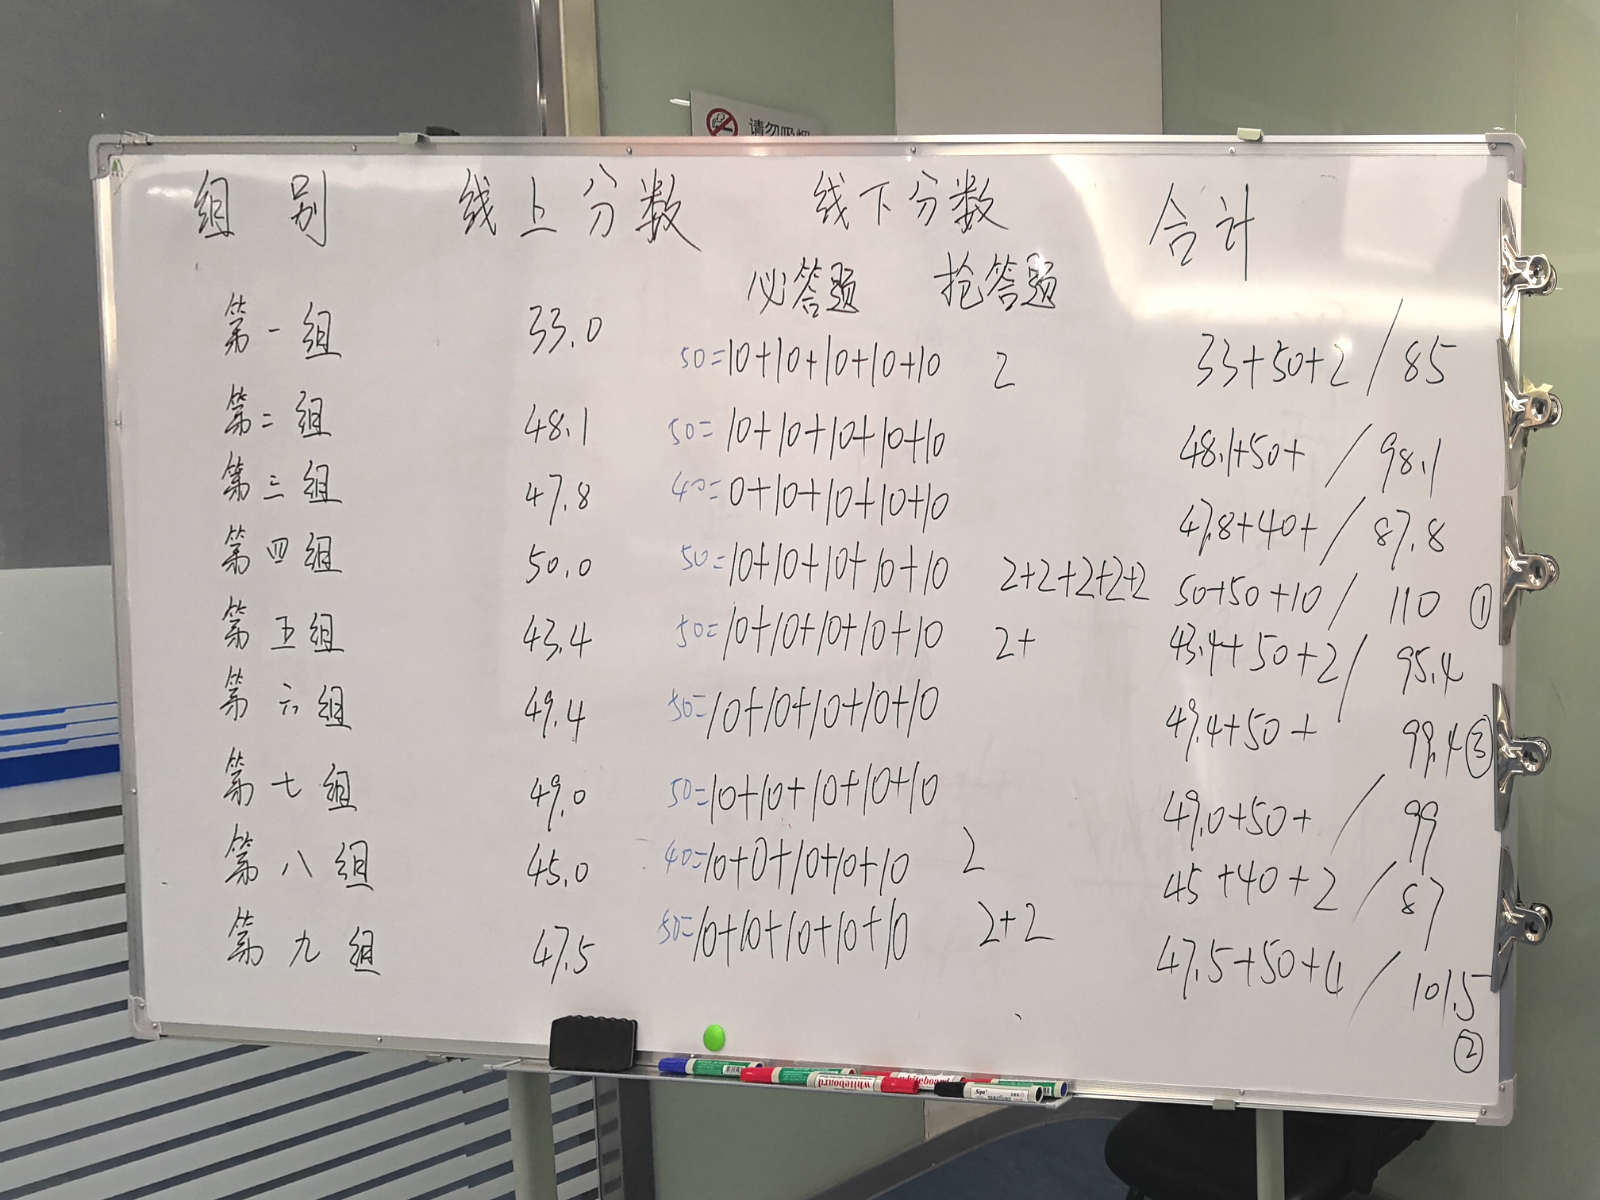 请勿吸烟
组别 线上分数 线下分数 合计
必答题 抢答题
第一组 33.0 50=10+10+10+10+10 2 33+50+2 / 85
第二组 48.1 50=10+10+10+10+10 48.1+50+ / 98.1
第三组 47.8 40=0+10+10+10+10 47.8+40+ / 87.8
第四组 50.0 50=10+10+10+10+10 2+2+2+2+2 50+50+10 / 110 ①
第五组 43.4 50=10+10+10+10+10 2+ 43.4+50+2 / 95.4
第六组 49.4 50=10+10+10+10+10 49.4+50+ 99.4 ③
第七组 49.0 50=10+10+10+10+10 49.0+50+ / 99
第八组 45.0 40=10+0+10+10+10 2 45+40+2 / 87
第九组 47.5 50=10+10+10+10+10 2+2 47.5+50+4 / 101.5
②
whiteboard